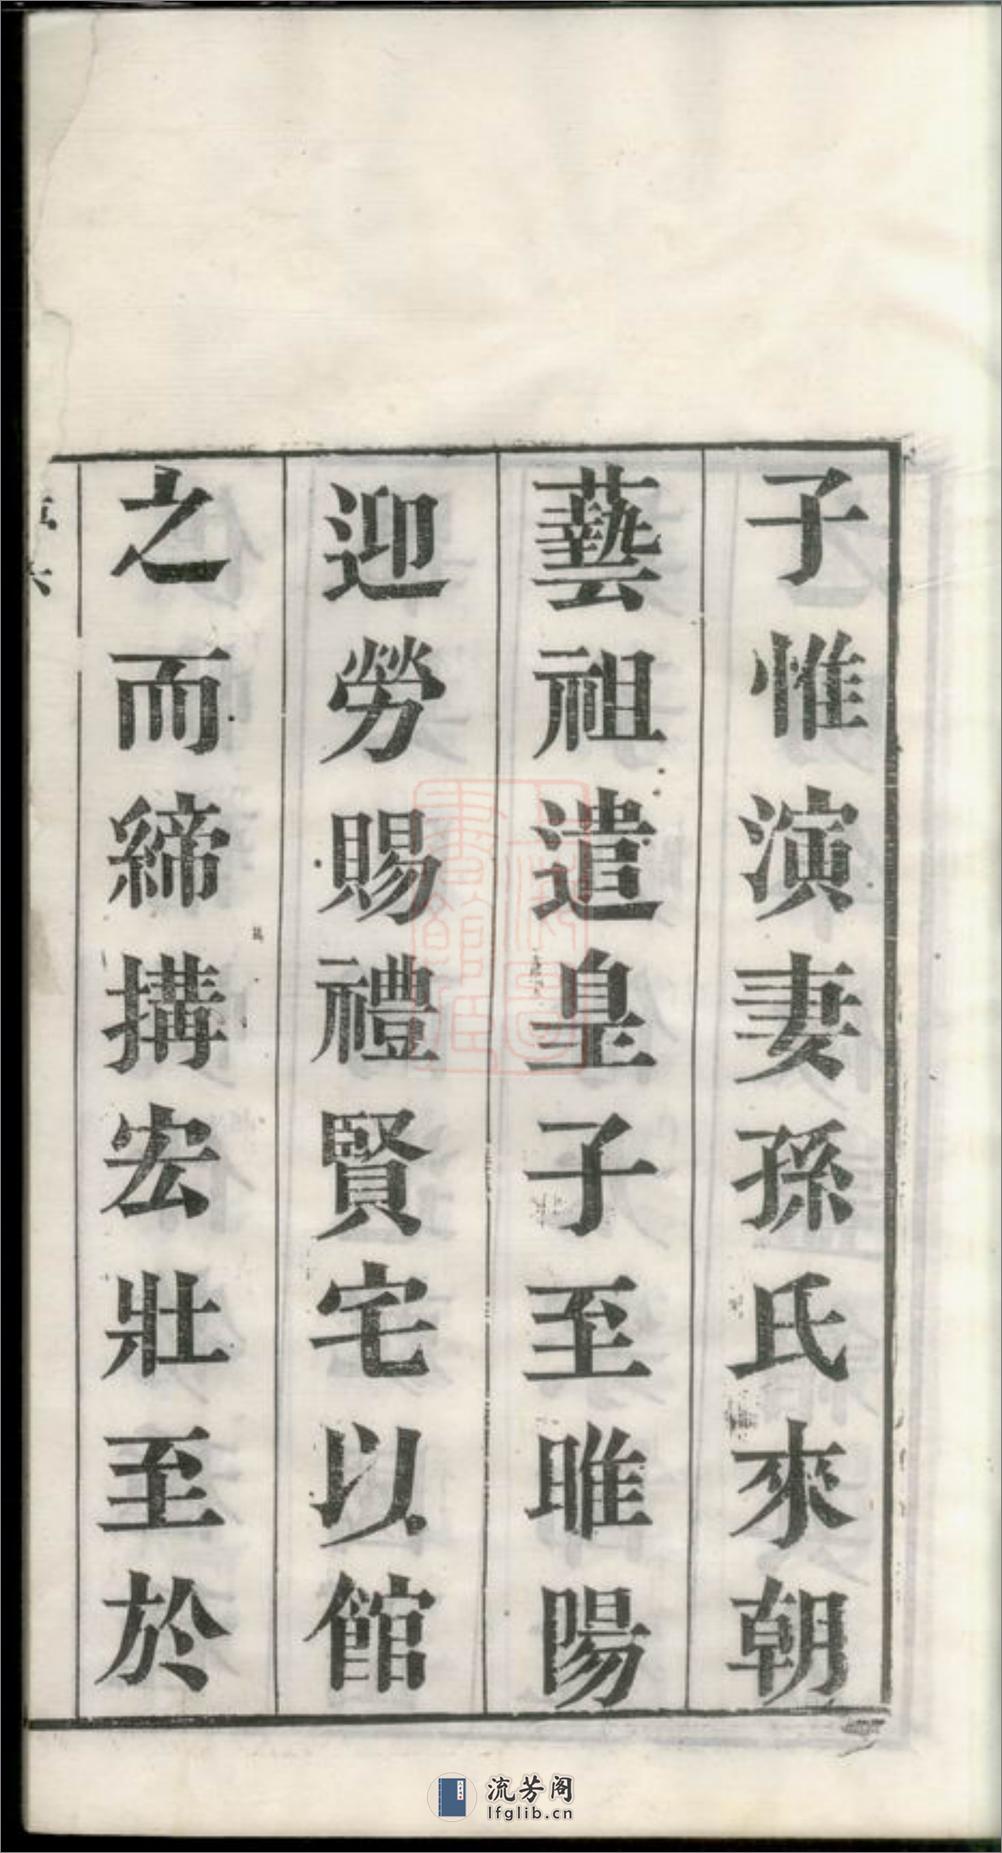 子惟演妻孫氏來朝
藝祖遣皇子至睢陽
迎勞賜禮賢宅以館
之而締搆宏壯至於
流芳阁
lfglib.cn